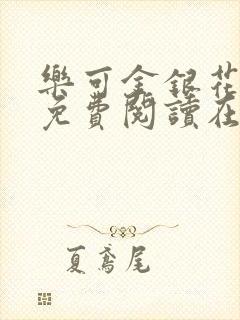 樂可金銀花
免費閱讀在
夏鳶尾